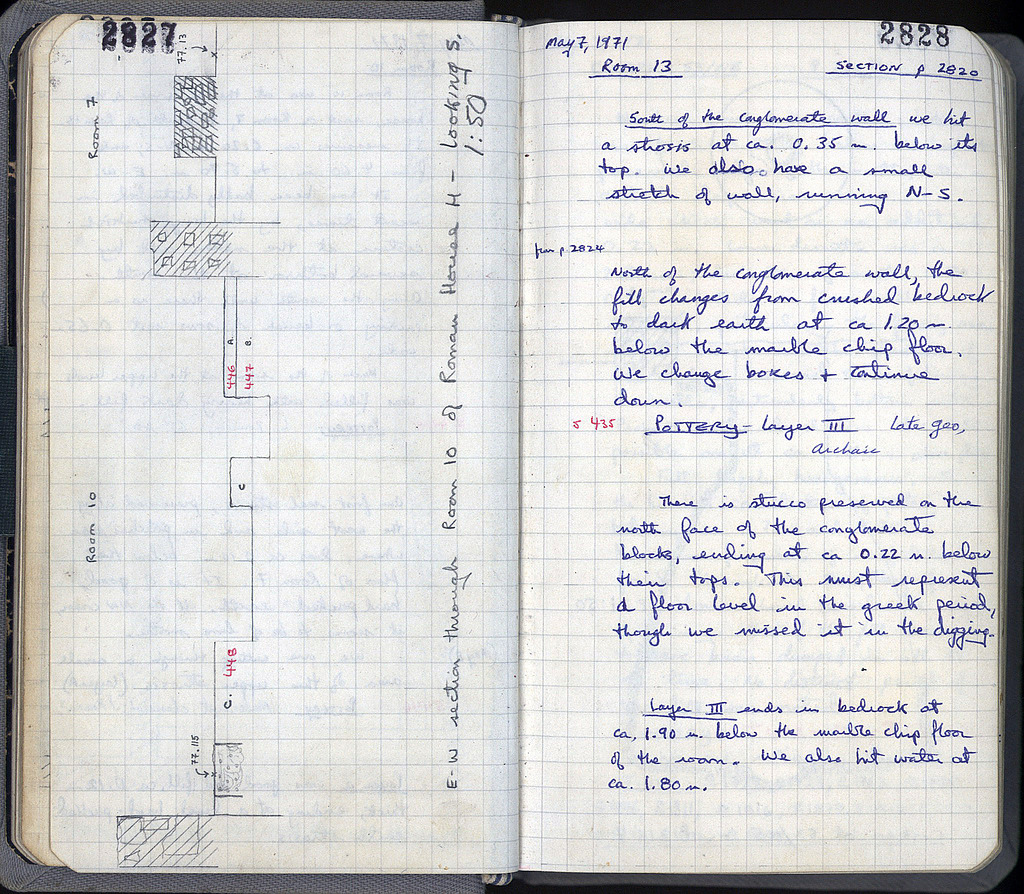 2827
77.13
Room 7
A.
B.
446
447
C
Room 10
448
C.
77.115
E-W section through Room 10 of Roman House H - Looking S.
1:50
2828
May 7, 1971
Room 13
SECTION p 2820
South of the conglomerate wall we hit
a strosis at ca. 0.35 m. below its
top. We also have a small
stretch of wall, running N-S.
from p. 2824
North of the conglomerate wall, the
fill changes from crushed bedrock
to dark earth at ca 1.20 m.
below the marble chip floor.
We change boxes + continue
down.
5 435
POTTERY - Layer III Late geo,
Archaic
There is stucco preserved on the
north face of the conglomerate
blocks, ending at ca 0.22 m. below
their tops. This must represent
a floor level in the greek period,
though we missed it in the digging.
Layer III ends in bedrock at
ca. 1.90 m. below the marble chip floor
of the room. We also hit water at
ca. 1.80 m.